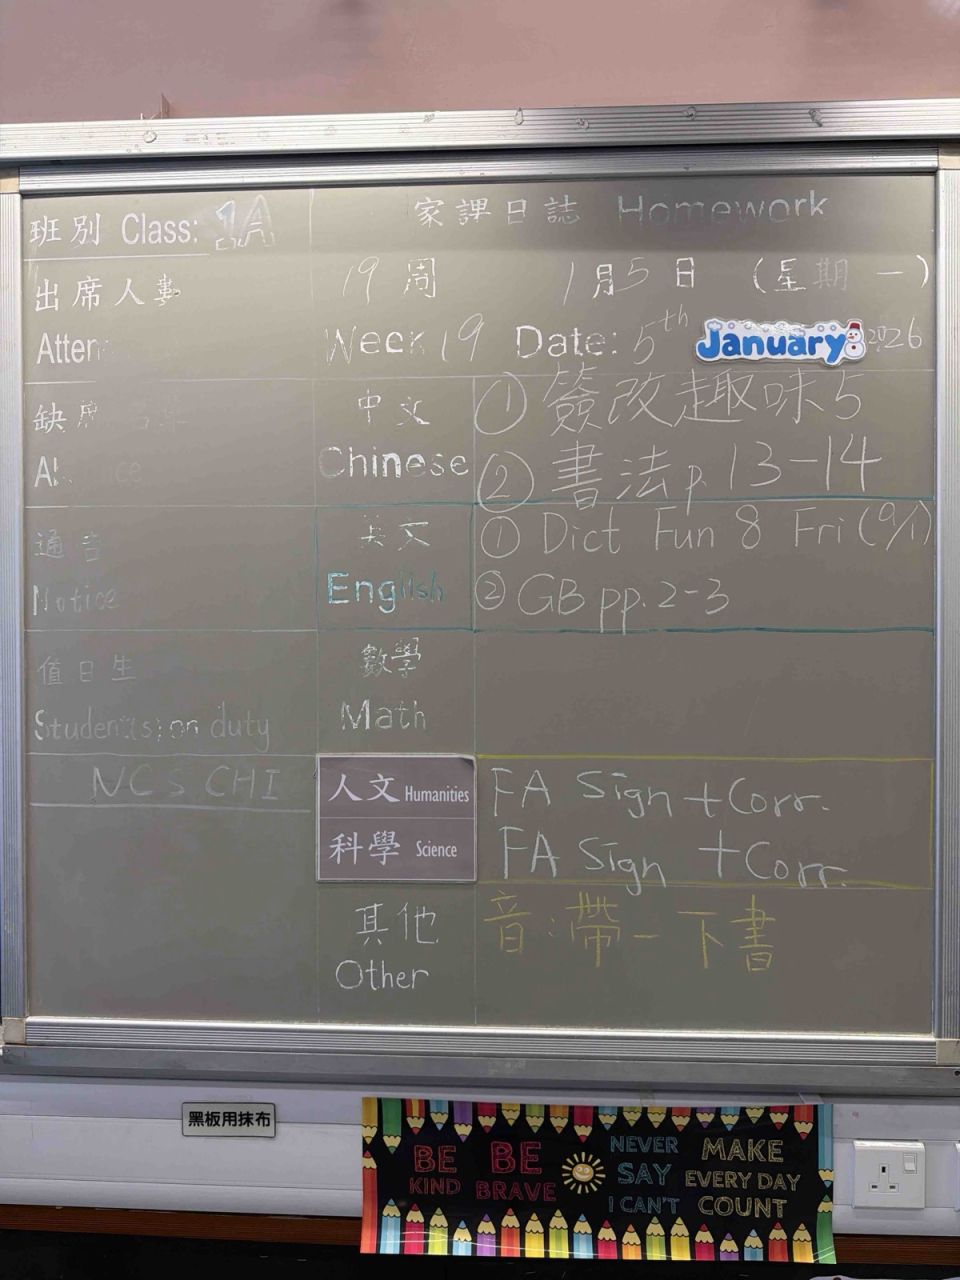 班別 Class: 1A
家課日誌 Homework
出席人數
19周 1月5日 (星期一)
Atten
Week 19 Date: 5th January 2026
缺席
中文
① 簽改趣味5
Chinese
② 書法p.13-14
通告
英文
① Dict Fun 8 Fri (9/1)
Notice
English
② GB pp.2-3
值日生
數學
Student(s) on duty
Math
NCS CHI
人文 Humanities
FA Sign + Corr.
科學 Science
FA Sign + Corr.
其他
音:帶一下書
Other
黑板用抹布
BE KIND
BE BRAVE
NEVER SAY I CAN'T
MAKE EVERY DAY COUNT